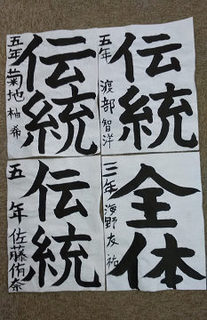 伝統
五年 菊地柚希
伝統
五年 渡部智洋
伝統
五年 佐藤佑奈
全体
三年 海野友祐